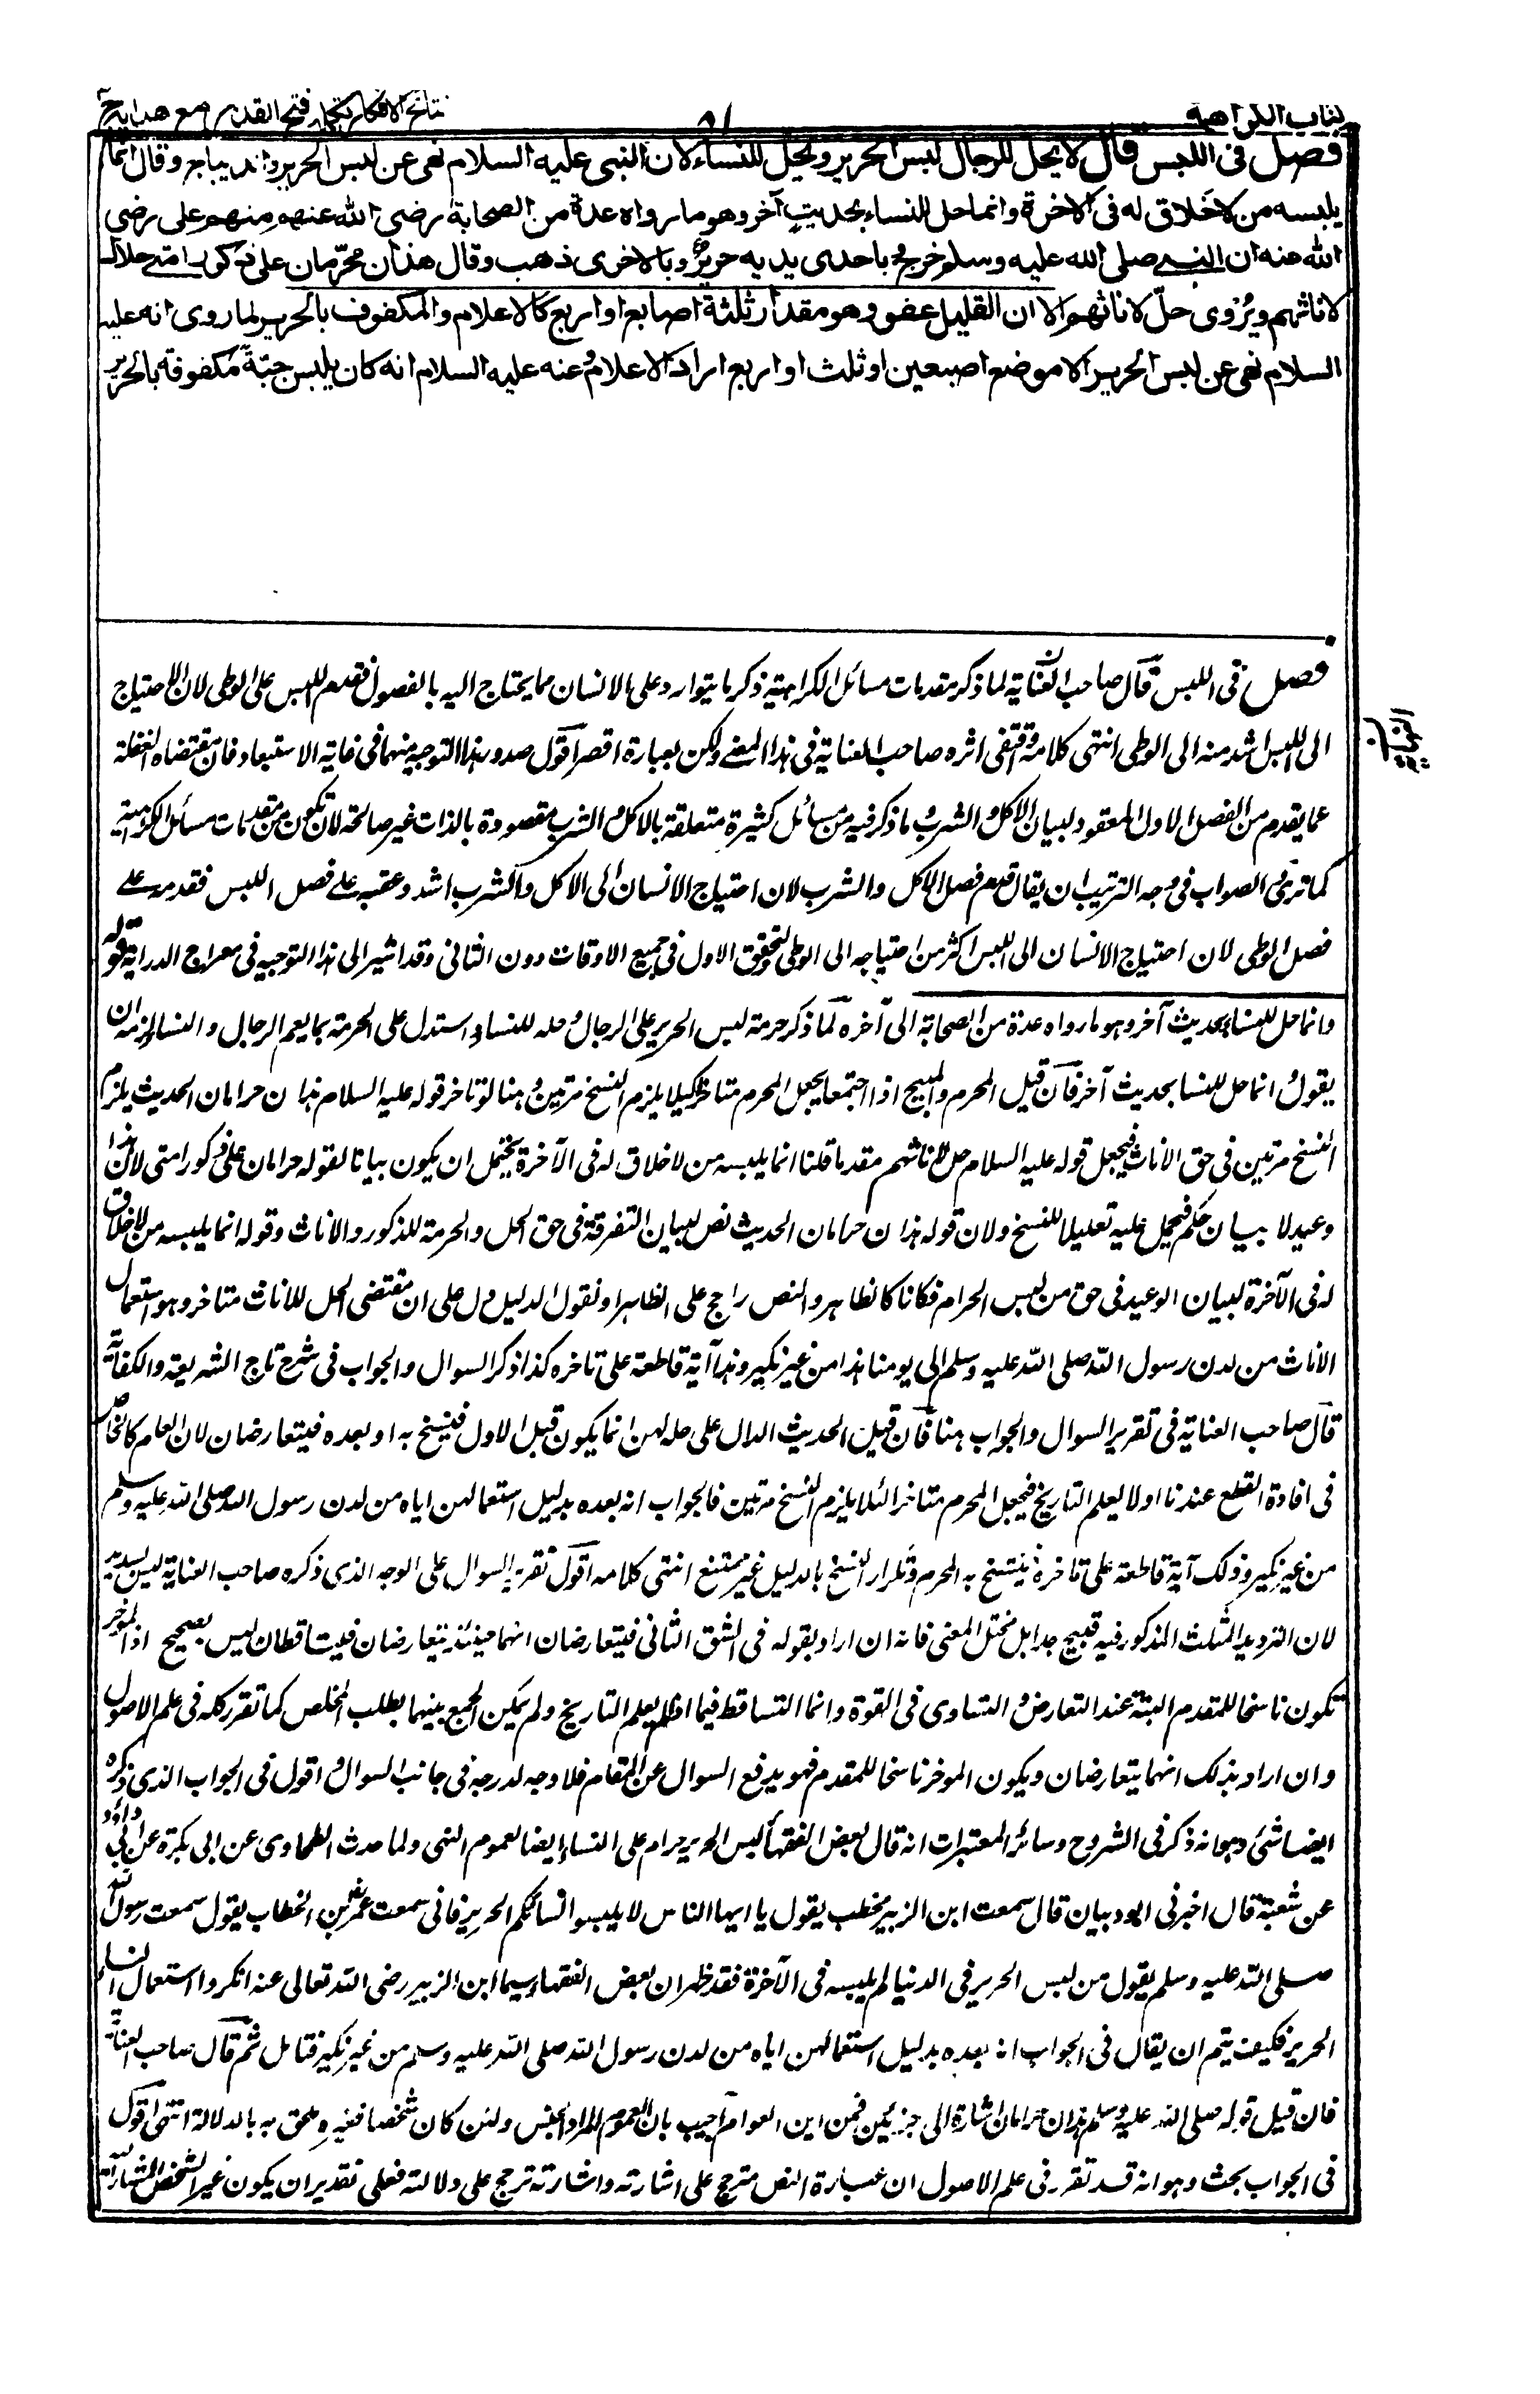 كتاب الكراهية
٨١
نتائج الافكار تكملة فتح القدير مع هداية ج
فصل فى اللبس قال لا يحل للرجال لبس الحرير ويحل للنساء لان النبى عليه السلام نهى عن لبس الحرير والديباج وقال انما
يلبسه من لاخلاق له فى الاخرة وانما حل للنساء بحديث آخر وهو ما رواه عدة من الصحابة رضى الله عنهم منهم على رضى
الله عنه ان النبى صلى الله عليه وسلم خرج وباحدى يديه حرير وبالاخرى ذهب وقال هذان محرّمان على ذكور امتى حلال
لاناثهم ويُروى حلّ لاناثهم الا ان القليل عفو وهو مقدار ثلثة اصابع او اربع كالاعلام والمكفوف بالحرير لما روى انه عليه
السلام نهى عن لبس الحرير الا موضع اصبعين او ثلث او اربع اراد الاعلام وعنه عليه السلام انه كان يلبس جبّة مكفوفة بالحرير
فصل فى اللبس قال صاحب النهاية لما ذكر مقدمات مسائل الكراهية ذكر ما يتوارد على الانسان مما يحتاج اليه بالفصول فقدم اللبس على الوطى لان الاحتياج
الى اللبس اشد منه الى الوطى انتهى كلامه واقتفى اثره صاحب العناية فى هذا المعنى ولكن بعبارة اقصر اقول صدور هذا التوجيه منهما فى غاية الاستبعاد فان مقتضاه الغفلة
عما يقدم من الفصل الاول المعقود لبيان الاكل والشرب وما ذكر فيه من مسائل كثيرة متعلقة بالاكل والشرب مقصودة بالذات غير صالحة لان تكون من مقدمات مسائل الكراهية
كما ترى والصواب فى وجه الترتيب ان يقال قدم فصل الاكل والشرب لان احتياج الانسان الى الاكل والشرب اشد وعقبه على فصل اللبس فقدمه على
فصل الوطى لان احتياج الانسان الى اللبس اكثر من احتياجه الى الوطى لتحقق الاول فى جميع الاوقات دون الثانى وقد اشير الى هذا التوجيه فى معراج الدراية قوله
وانما حل للنساء بحديث آخر وهو ما رواه عدة من الصحابة الى آخره لما ذكر حرمة لبس الحرير على الرجال وحله للنساء واستدل على الحرمة بما يعم الرجال والنساء لزمه ان
يقول وانما حل للنساء بحديث آخر فان قيل المحرم والمبيح اذا اجتمعا يجعل المحرم متاخرا كيلا يلزم النسخ مرتين وهنا لو تاخر قوله عليه السلام هذان حرامان الحديث يلزم
النسخ مرتين فى حق الاناث فيجعل قوله عليه السلام حل لاناثهم مقدما قلنا انما يلبسه من لا خلاق له فى الآخرة يحتمل ان يكون بيانا لقوله حرامان على ذكور امتى لان هذا
وعيد لا بيان حكم فيحمل عليه تعليلا للنسخ ولان قوله هذان حرامان الحديث نص لبيان التفرقة فى حق الحل والحرمة للذكور والاناث وقوله انما يلبسه من لا خلاق
له فى الآخرة لبيان الوعيد فى حق من لبس الحرام فكانا كالظاهر والنص راجح على الظاهر او نقول الدليل دل على ان مقتضى الحل للاناث متاخر وهو استعمال
الاناث من لدن رسول الله صلى الله عليه وسلم الى يومنا هذا من غير نكير وهذا آية قاطعة على تاخره كذا ذكر السوال والجواب فى شرح تاج الشريعة والكفاية
قال صاحب العناية فى تقرير السوال والجواب هنا فان قيل الحديث الدال على حله لهن انما يكون قبل الاول فينسخ به او بعده فيتعارضان لان العام كالخاص
فى افادة القطع عندنا او لا يعلم التاريخ فيجعل المحرم متاخرا لئلا يلزم النسخ مرتين فالجواب انه بعده بدليل استعمالهن اياه من لدن رسول الله صلى الله عليه وسلم
من غير نكير وذلك آية قاطعة على تاخره فينتسخ به المحرم وتكرار النسخ بالدليل غير ممتنع انتهى كلامه اقول تقرير السوال على الوجه الذى ذكره صاحب العناية ليس بسديد
لان الترديد المثلث المذكور فيه قبيح جدا بل مختل المعنى فانه ان اراد بقوله فى الشق الثانى فيتعارضان انهما حينئذ يتعارضان فيتساقطان ليس بصحيح اذ المؤخر
تكون ناسخا للمقدم البتة عند التعارض والتساوى فى القوة وانما التساقط فيما اذا لم يعلم التاريخ ولم يكن الجمع بينهما بطلب المخلص كما تقرر كله فى علم الاصول
وان اراد بذلك انهما يتعارضان ويكون الموخر ناسخا للمقدم فهو يدفع السوال عن المقام فلا وجه لدرجه فى جانب السوال واقول فى الجواب الذى ذكره
ايضا شئ وهو انه ذكر فى الشروح وسائر المعتبرات انه قال بعض الفقهاء لبس الحرير حرام على النساء ايضا لعموم النهى ولما حدث الطحاوى عن ابى بكرة عن ابى داؤد
عن شعبة قال اخبرنى ابو ذبيان قال سمعت ابن الزبير يخطب يقول يا ايها الناس لا يلبسوا نسائكم الحرير فانى سمعت عمر بن الخطاب يقول سمعت رسول الله
صلى الله عليه وسلم يقول من لبس الحرير فى الدنيا لم يلبسه فى الآخرة فقد ظهر ان بعض الفقهاء سيما ابن الزبير رضى الله تعالى عنه انكروا استعمال النساء
الحرير فكيف يتم ان يقال فى الجواب انه بعده بدليل استعمالهن اياه من لدن رسول الله صلى الله عليه وسلم من غير نكير فتامل ثم قال صاحب العناية
فان قيل قوله صلى الله عليه وسلم هذان حرامان اشارة الى جزئين فمن اين العموم اجيب بان المراد الجنس ولئن كان شخصا فغيره ملحق به بالدلالة انتهى اقول
فى الجواب بحث وهو انه قد تقرر فى علم الاصول ان عبارة النص مترجح على اشارته واشارته ترجح على دلالته فعلى تقدير ان يكون غير الشخص المشار اليه